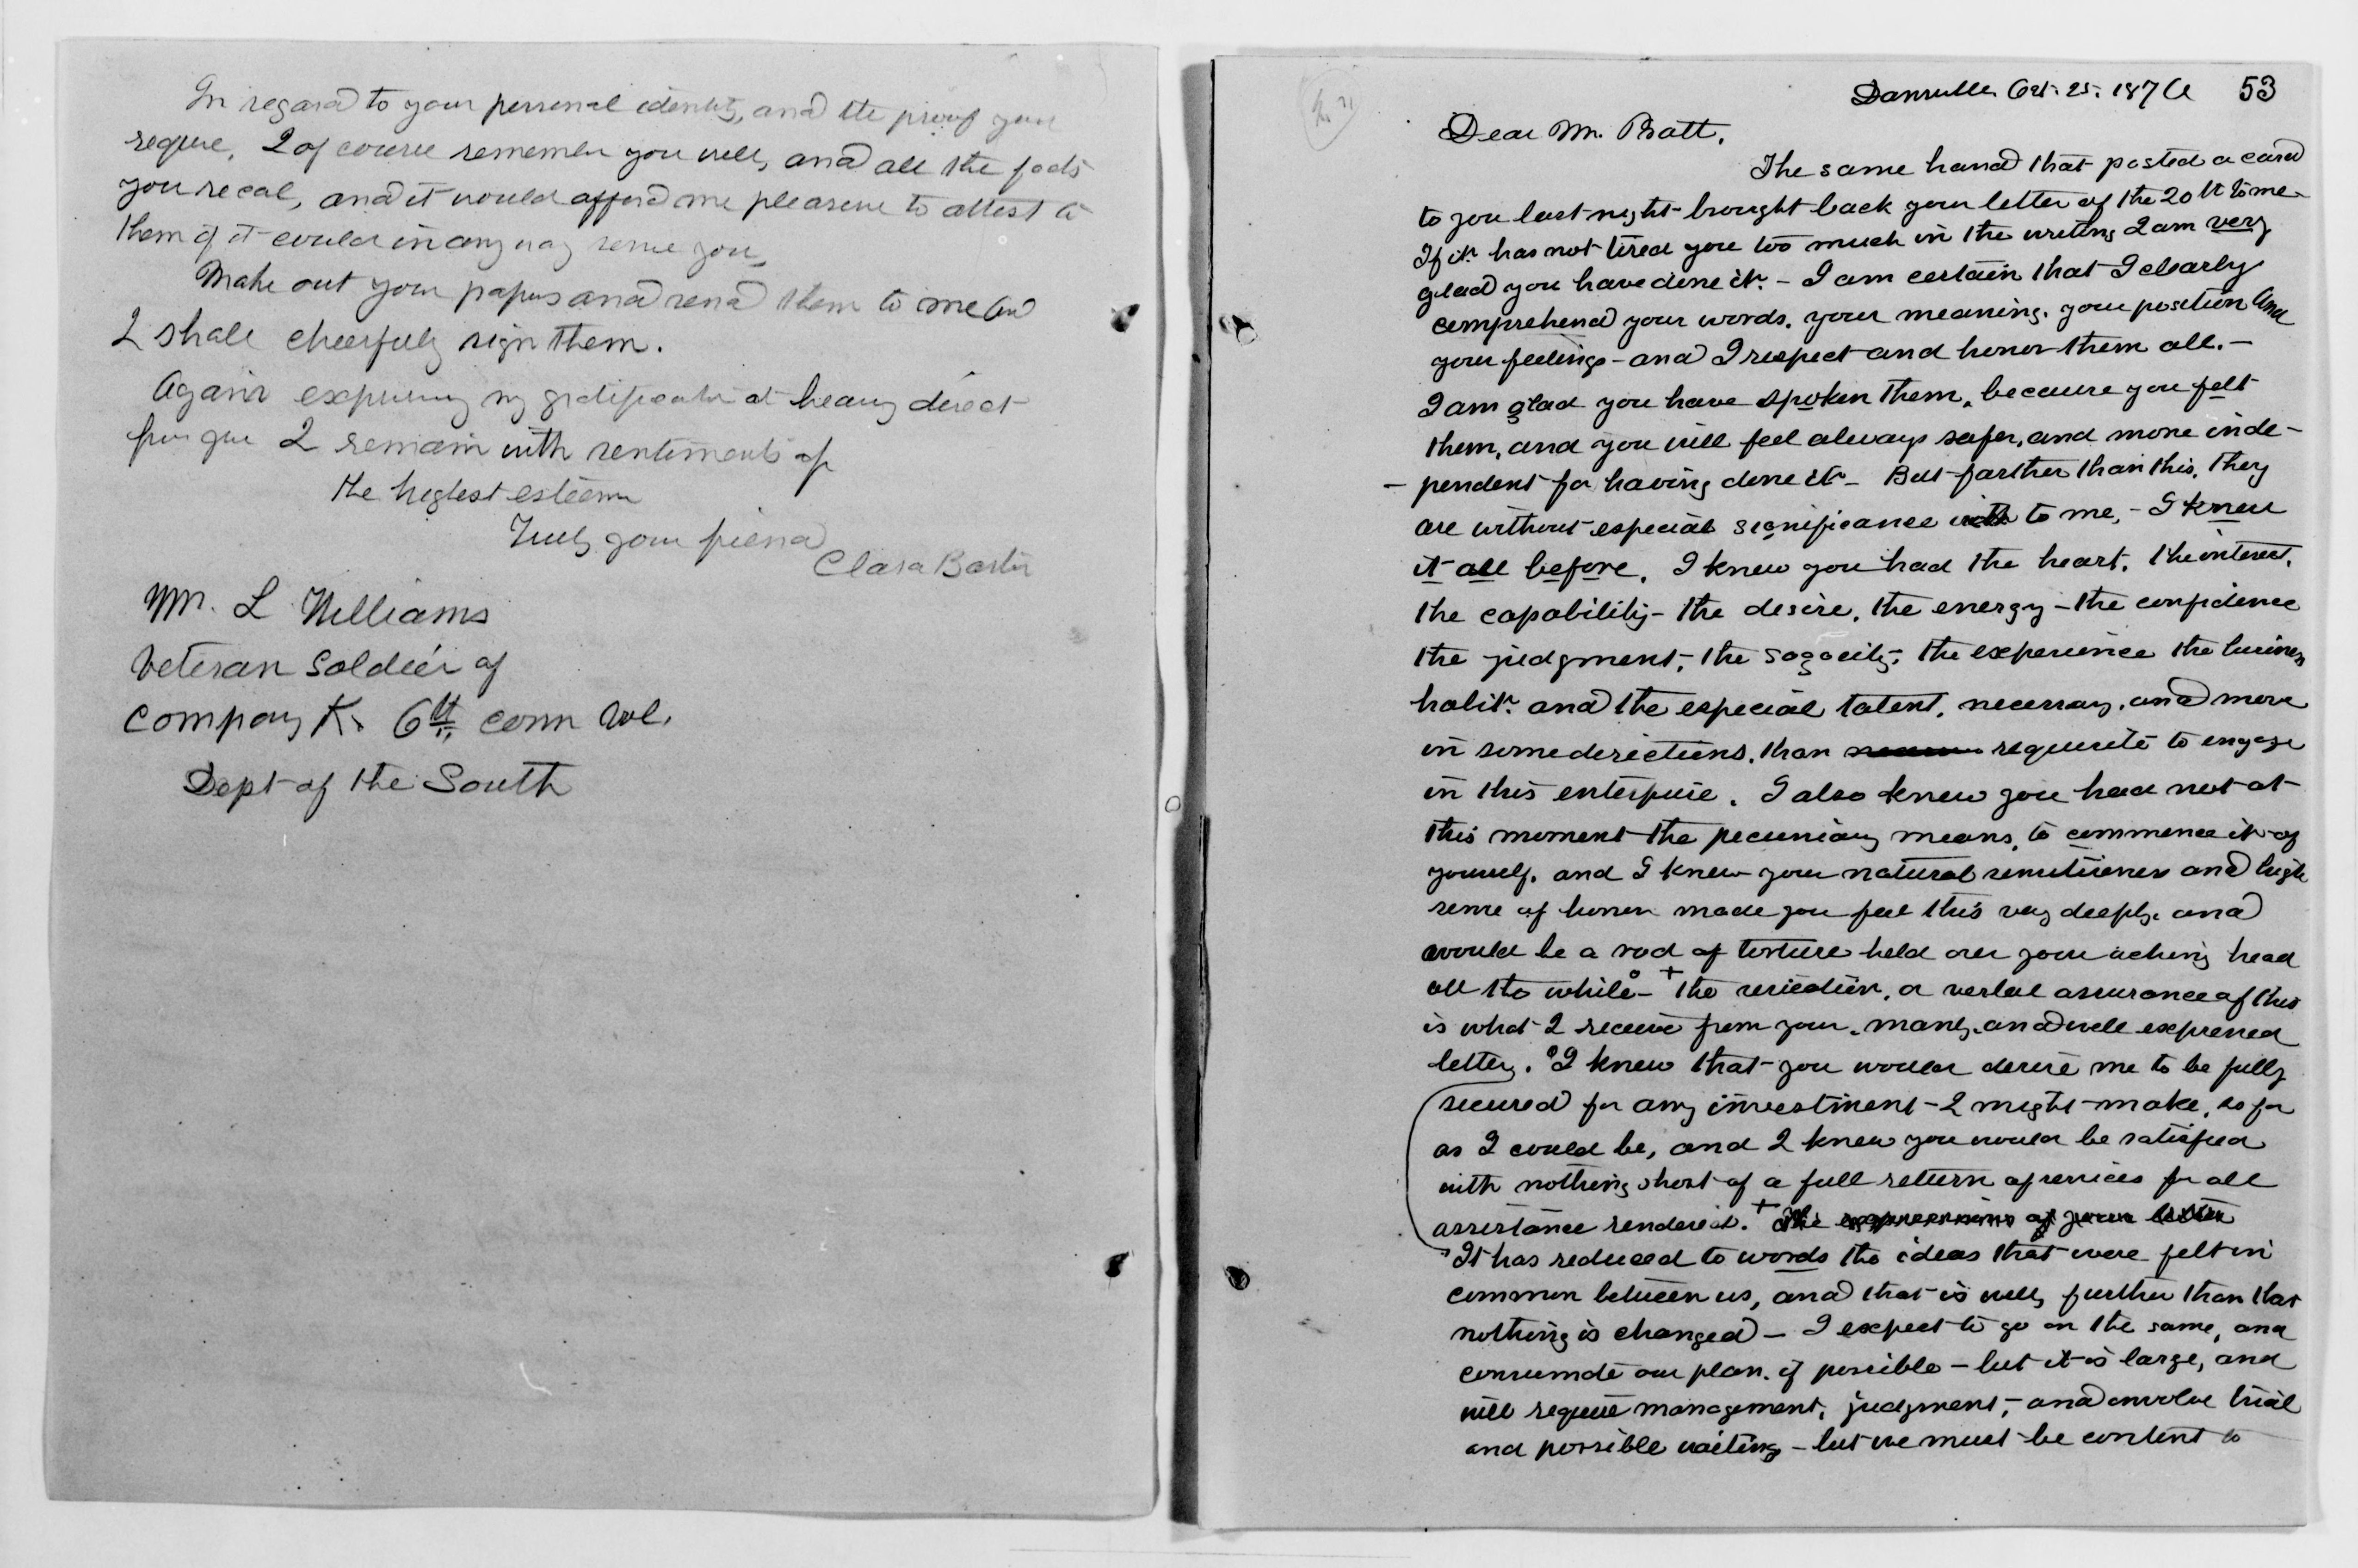 In regard to your personal identity, and the proof you
require, I of course remember you well, and all the facts
you recal, and it would afford me pleasure to attest to
them if it could in any way serve you,
Make out your papers and send them to me and
I shall cheerfully sign them.
Again expressing my gratification at hearing direct
from you I remain with sentiments of
the highest esteem
Truly your friend
Clara Barton
Wm. L Williams
Veteran Soldier of
Company K. 6th Conn Vol.
Dept of the South
Dansville Oct. 25. 1876 53
Dear Mr. Pratt,
The same hand that posted a card
to you last night brought back your letter of the 20th to me.
If it has not tired you too much in the writing I am very
glad you have done it. - I am certain that I clearly
comprehend your words, your meaning, your position and
your feelings - and I respect and honor them all. -
I am glad you have spoken them, because you felt
them, and you will feel always safer, and more inde-
- pendent for having done it - But farther than this, they
are without especial significance with to me, - I knew
it all before. I knew you had the heart, the interest,
the capability - the desire, the energy - the confidence
the judgment, the sagacity, the experience the business
habit, and the especial talent, necessary, and more
in some directions, than requisite to engage
in this enterprise. I also knew you had not at
this moment the pecuniary means, to commence it of
yourself, and I knew your natural sensitiveness and high
sense of honor made you feel this very deeply, and
would be a rod of torture held over your aching head
all the while - + the reiteration, or verbal assurance of this
is what I receive from your, manly, and well expressed
letter. I knew that you would desire me to be fully
secured for any investment I might make, so far
as I could be, and I knew you would be satisfied
with nothing short of a full return of services for all
assistance rendered. + The expressions of your letter
It has reduced to words the ideas that were felt in
common between us, and that is well, further than that
nothing is changed - I expect to go on the same, and
consumate our plan, if possible - but it is large, and
will require management, judgment, and involve trial
and possible waiting - but we must be content to